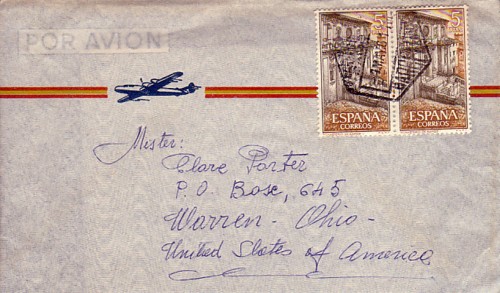 POR AVION
5 5
ESPAÑA ESPAÑA
CORREOS CORREOS
Mister:
Clare Porter
P. O. Bose, 645
Warren - Ohio -
United States of America